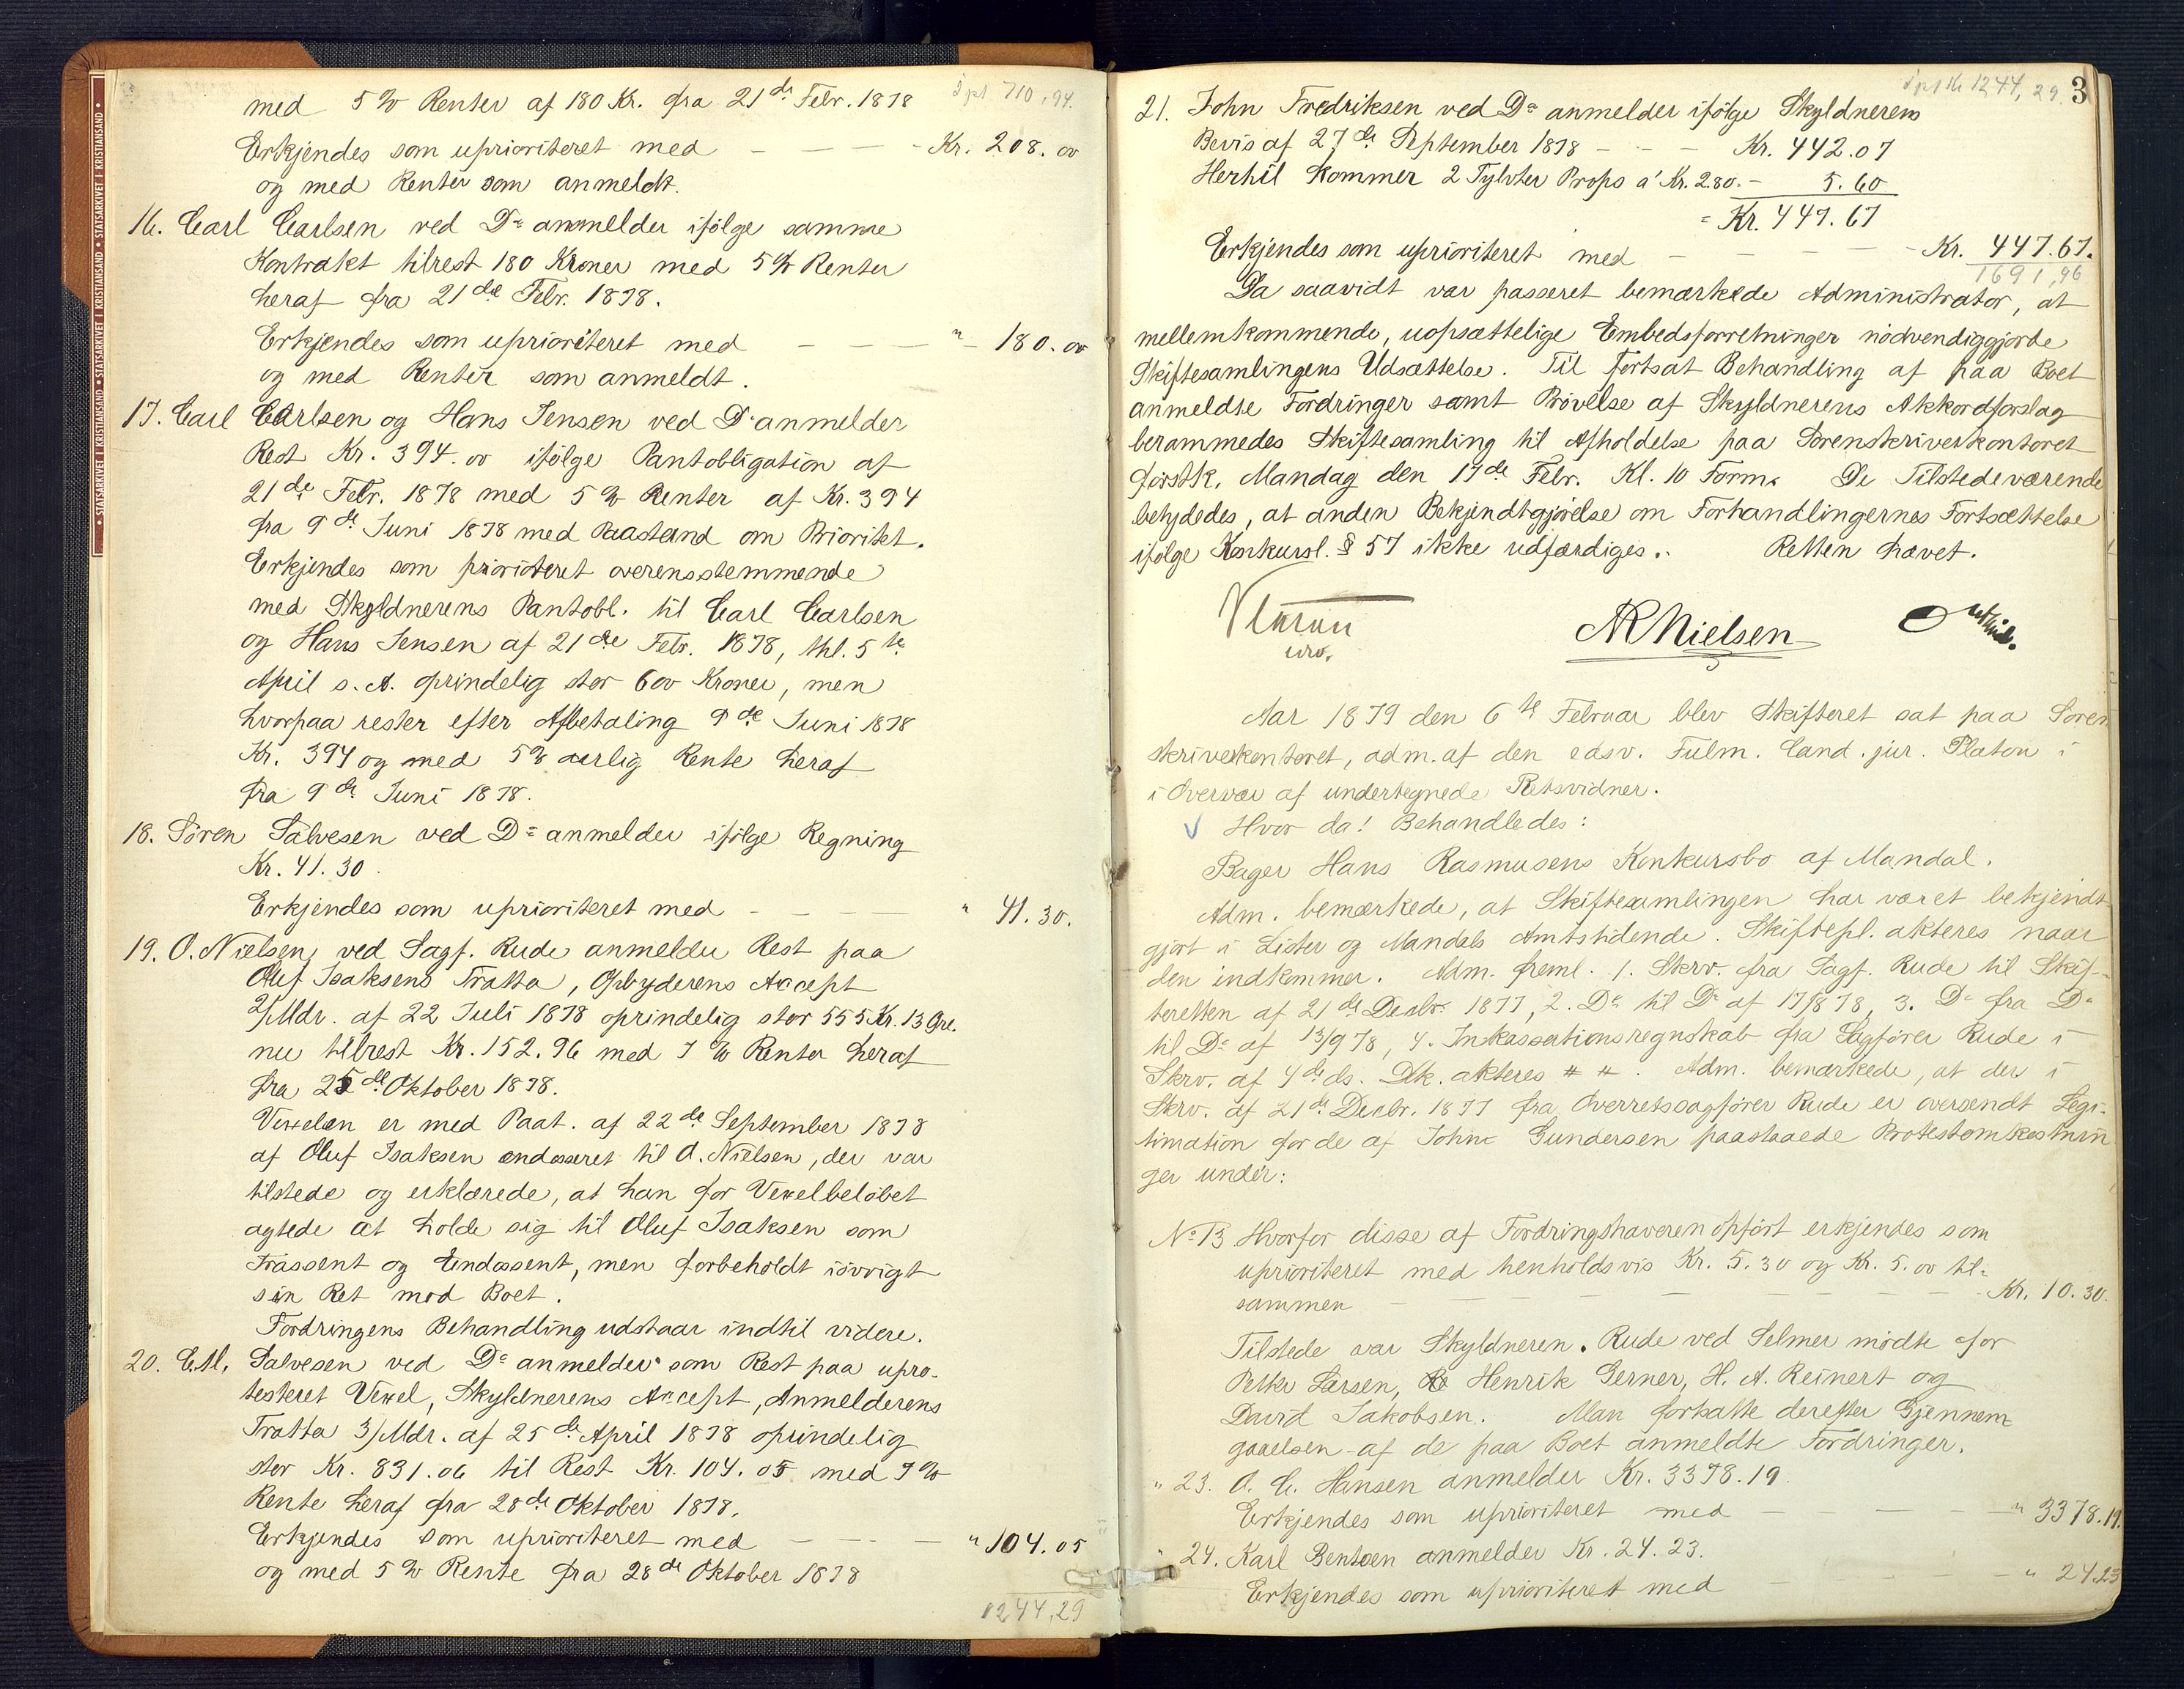 • STATSARKIVET I KRISTIANSAND • STATSARKIVET I KRISTIANSAND • STATSARKIVET I KRISTIANSAND •
710,94.
med 5 % Renter af 180 Kr. fra 21de Febr. 1878
Erkjendes som uprioriteret med — — — Kr. 208.00
og med Renter som anmeldt.
16. Carl Carlsen ved Do anmelder ifølge samme
Kontrakt tilrest 180 Kroner med 5 % Renter
heraf fra 21de Febr. 1878.
Erkjendes som uprioriteret med — — — " 180.00
og med Renter som anmeldt.
17. Carl Carlsen og Hans Jensen ved Do anmelder
Rest Kr. 394.00 ifølge Pantobligation af
21de Febr. 1878 med 5 % Renter af Kr. 394
fra 9de Juni 1878 med Paastand om Prioritet.
Erkjendes som prioriteret overensstemmende
med Skyldnerens Pantobl. til Carl Carlsen
og Hans Jensen af 21de Febr. 1878, thl. 5te
April s. A. oprindelig stor 600 Kroner, men
hvorpaa rester efter Afbetaling 9de Juni 1878
Kr. 394 og med 5 % aarlig Rente heraf
fra 9de Juni 1878.
18. Søren Salvesen ved Do anmelder ifølge Regning
Kr. 41.30.
Erkjendes som uprioriteret med — — — " 41.30.
19. O. Nielsen, ved Sagf. Rude anmelder Rest paa
Oluf Isaksens Tratta, Opbyderens Accept
2/Mdr. af 22 Juli 1878 oprindelig stor 555 Kr. 13 Øre.
nu tilrest Kr. 152.96 med 7 % Renter heraf
fra 25de Oktober 1878.
Vexelen er med Paat. af 22de September 1878
af Oluf Isaksen endosseret til O. Nielsen, der var
tilstede og erklærede, at han for Vexelbeløbet
agtede at holde sig til Oluf Isaksen som
Trassent og Endossent, men forbeholdt iøvrigt
sin Ret mod Boet.
Fordringens Behandling udstaar indtil videre.
20. Salvesen ved Do anmelder som Rest paa upro-
testeret Vexel, Skyldnerens Accept, Anmelderens
Tratta 3/Mdr. af 25de April 1878 oprindelig
stor Kr. 831.06 til Rest Kr. 104.05 med 7 %
Rente heraf fra 28de Oktober 1878.
Erkjendes som uprioriteret med — — — " 104.05
og med 5 % Rente fra 28de Oktober 1878
1244,29
1244,29. 3
21. John Fredriksen ved Do anmelder ifølge Skyldnerens
Bevis af 27de September 1878 — — — Kr. 442.07
Hertil kommer 2 Tylvter Props a' Kr. 2.80. — 5.60
= Kr. 447.67
Erkjendes som uprioriteret med — — — Kr. 447.67.
1691,96
Da saavidt var passeret bemærkede Administrator, at
mellemkommende, uopsættelige Embedsforretninger nødvendiggjorde
Skiftesamlingens Udsættelse. Til fortsat Behandling af paa Boet
anmeldte Fordringer samt Prøvelse af Skyldnerens Akkordforslag
berammedes Skiftesamling til Afholdelse paa Sorenskriverkontoret
førstk. Mandag den 17de Febr. Kl. 10 Form. De Tilstedeværende
betydedes, at anden Bekjendtgjørelse om Forhandlingernes Fortsættelse
ifølge Konkursl. § 57 ikke udfærdiges. Retten hævet.
NR Nielsen
Aar 1879 den 6te Februar blev Skifteret sat paa Soren
skriverkontoret, adm. af den edsv. Fulm. Cand. jur. Platou i
i Overvær af undertegnede Retsvidner.
V Hvor da! Behandledes:
Bager Hans Rasmusens Konkursbo af Mandal.
Adm. bemærkede, at Skiftesamlingen har været bekjendt-
gjort i Lister og Mandals Amtstidende. Skiftepl. akteres naar
den indkommer. Adm. freml. 1. Skrv. fra Sagf. Rude til Skif-
teretten af 21de Decbr. 1877, 2. Do til Do af 17/8 78, 3. Do fra Do
til Do af 13/9 78, 4. Inkassationsregnskab fra Sagfører Rude i
Skrv. af 4de ds. Dok. akteres # #. Adm. bemærkede, at der i
Skrv. af 21de Decbr. 1877 fra Overretssagfører Rude er oversendt Legi-
timation for de af John Gundersen paastaaede Protestomkostnin
ger under:
No 13 Hvorfor disse af Fordringshaveren opført erkjendes som
uprioriteret med henholdsvis Kr. 5.30 og Kr. 5.00 til-
sammen — — — — — — Kr. 10.30.
Tilstede var Skyldneren. Rude ved Selmer mødte for
Petter Larsen, Henrik Gerner, H. A. Reinert og
David Jakobsen. Man fortsatte derefter Gjennem
gaaelsen af de paa Boet anmeldte Fordringer.
" 23. O. C. Hansen anmelder Kr. 3378.19.
Erkjendes som uprioriteret med — — — " 3378.19.
" 24. Karl Bentsen anmelder Kr. 24.23.
Erkjendes som uprioriteret med — — — " 24.23